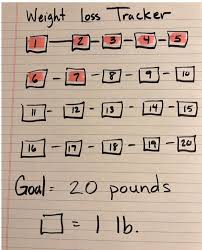 Weight loss Tracker
1 - 2 - 3 - 4 - 5
6 - 7 - 8 - 9 - 10
11 - 12 - 13 - 14 - 15
16 - 17 - 18 - 19 - 20
Goal = 20 pounds
□ = 1 lb.